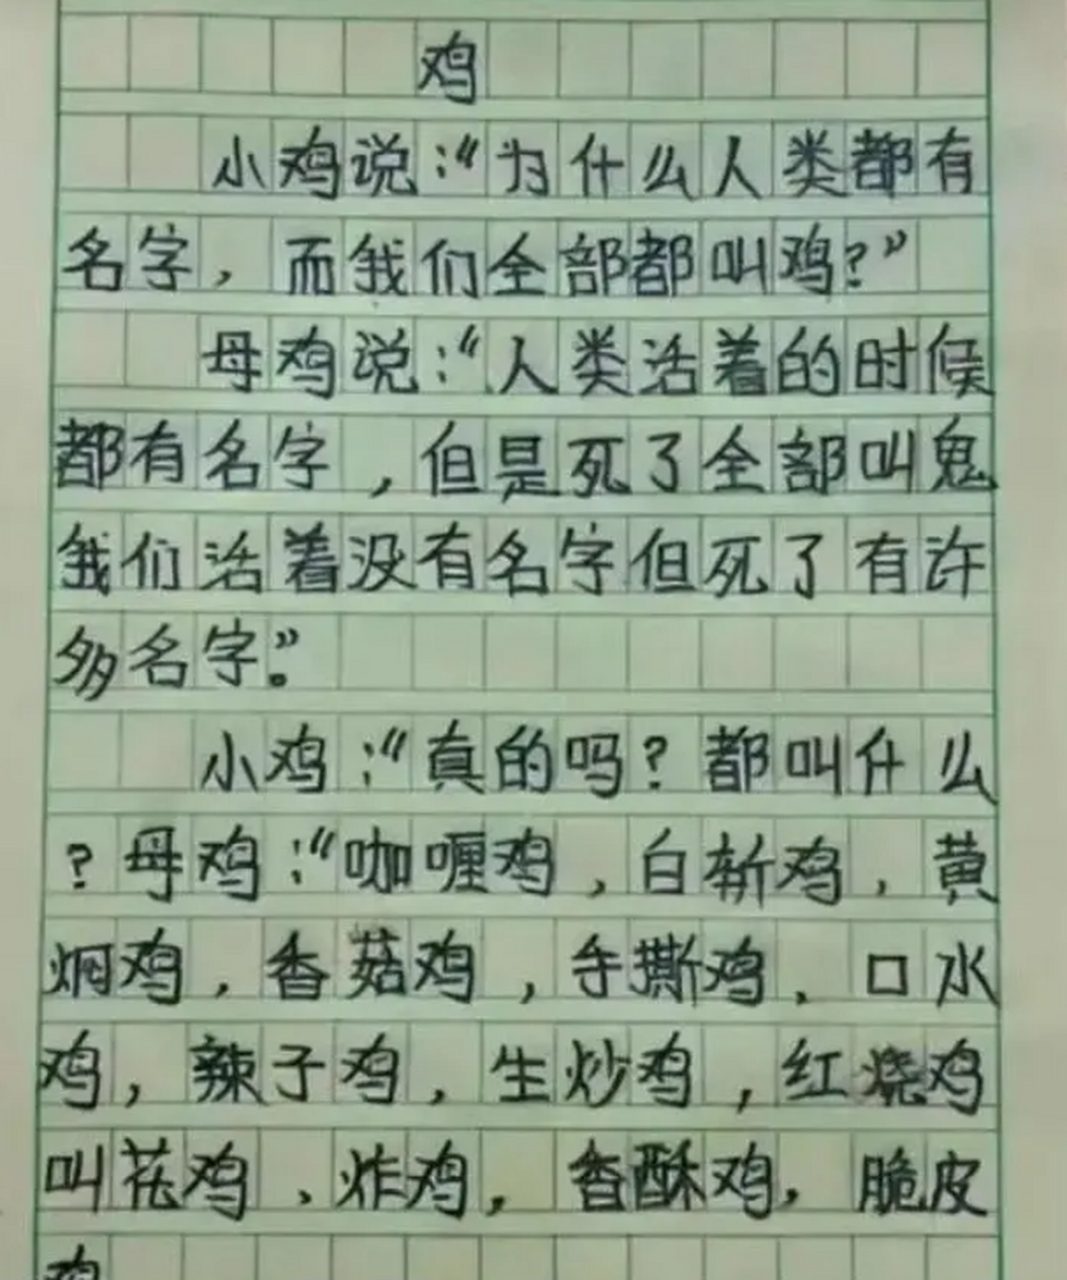 鸡
小鸡说:“为什么人类都有
名字，而我们全部都叫鸡?”
母鸡说:“人类活着的时候
都有名字，但是死了全部叫鬼
我们活着没有名字但死了有许
多名字。”
小鸡:“真的吗?都叫什么
?母鸡:“咖喱鸡，白斩鸡，黄
焖鸡，香菇鸡，手撕鸡、口水
鸡，辣子鸡，生炒鸡，红烧鸡
叫花鸡、炸鸡，香酥鸡，脆皮
鸡